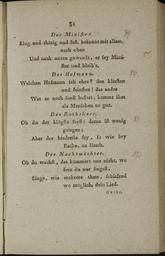 31
Der Minister
Klug und thätig und fest, bekannt mit allem,
nach oben
Und nach unten gewandt, er sey Mini-
ster und bleib's.
Der Hofmann.
Welchen Hofmann ich ehre? den klärsten
und feinsten! das andre
Was er noch sonst besitzt, kommt ihm
als Menschen zu gut.
Der Rathsherr.
Ob du der klügste seyst: daran ist wenig
gelegen;
Aber der biederste sey, so wie bey
Rathe, zu Hause.
Der Nachtwächter.
Ob du wachst, das kümmert uns nicht, wo-
fern du nur singest.
Singe, wie mehrere thun, schlafend
wo möglich, dein Lied.